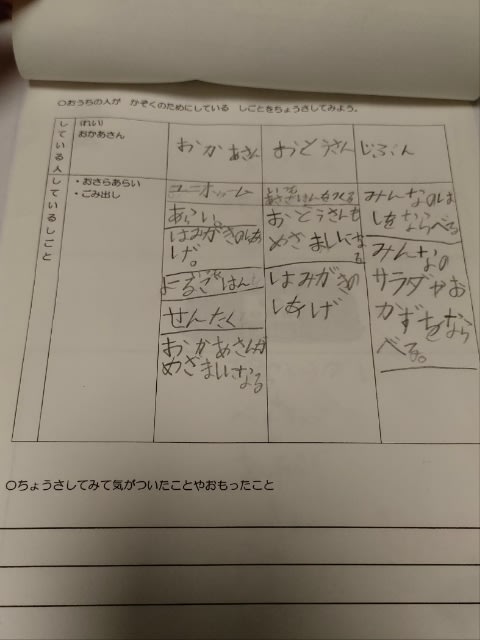 ○おうちの人が　かぞくのためにしている　しごとをちょうさしてみよう。
している人
(れい)
おかあさん
おかあさん
おとうさん
じぶん
しているしごと
・おさらあらい
・ごみ出し
ユニホーム
あらい。
はみがきのしあ
げ。
よーるごはん
せんたく
おかあさんが
めざましになる
いつも
あさごはんをつくる
おとうさんも
めざましになる
はみがきの
しあげ
みんなのは
しをならべる
みんなの
サラダやお
かずをなら
べる。
○ちょうさしてみて気がついたことやおもったこと